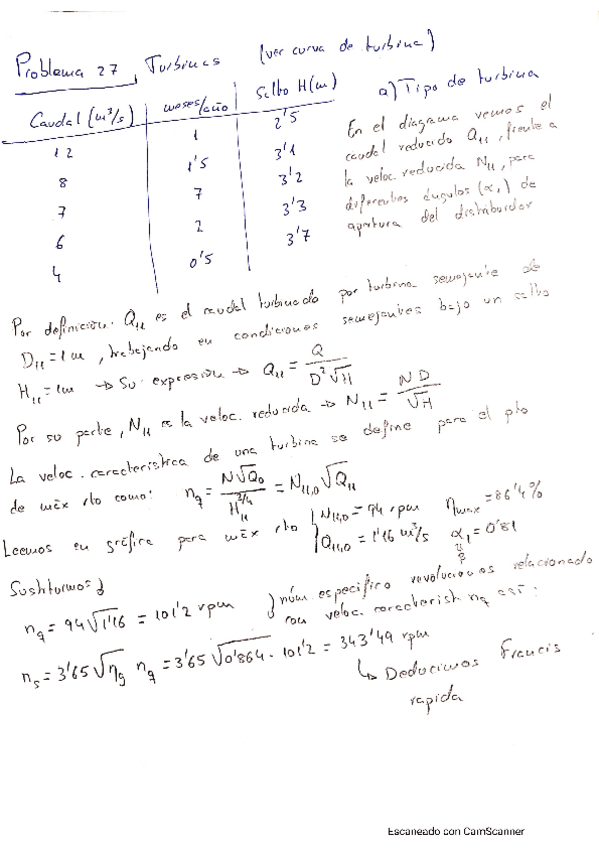 Problema 27, Turbinas (ver curva de turbina)
Caudal (m³/s) | meses/año | Salto H(m)
12 | 1 | 2'5
8 | 1'5 | 3'1
7 | 7 | 3'2
6 | 2 | 3'3
4 | 0'5 | 3'7
a) Tipo de turbina
En el diagrama vemos el
caudal reducido Q₁₁, frente a
la veloc. reducida N₁₁, para
diferentes ángulos (α₁) de
apertura del distribuidor
Por definición: Q₁₁ es el caudal turbinado por turbina semejante de
D₁₁ = 1m, trabajando en condiciones semejantes bajo un salto
H₁₁ = 1m → Su expresión → Q₁₁ = Q / D²√H
Por su parte, N₁₁ es la veloc. reducida → N₁₁ = ND / √H
La veloc. característica de una turbina se define para el pto
de máx rto como: n_q = N√Q₀ / H₁₁^3/4 = N₁₁,₀ √Q₁₁
Leemos en gráfica para máx rto { N₁₁,₀ = 94 rpm η max = 86'4%
Q₁₁,₀ = 1'16 m³/s α₁ = 0'81
β
Sustituimos}
n_q = 94√1'16 = 101'2 rpm } núm específico revoluciones relacionado
con veloc. característ n_q así:
n_s = 3'65 √η_g n_q = 3'65 √0'864 · 101'2 = 343'49 rpm
↳ Deducimos Francis
rapida
Escaneado con CamScanner